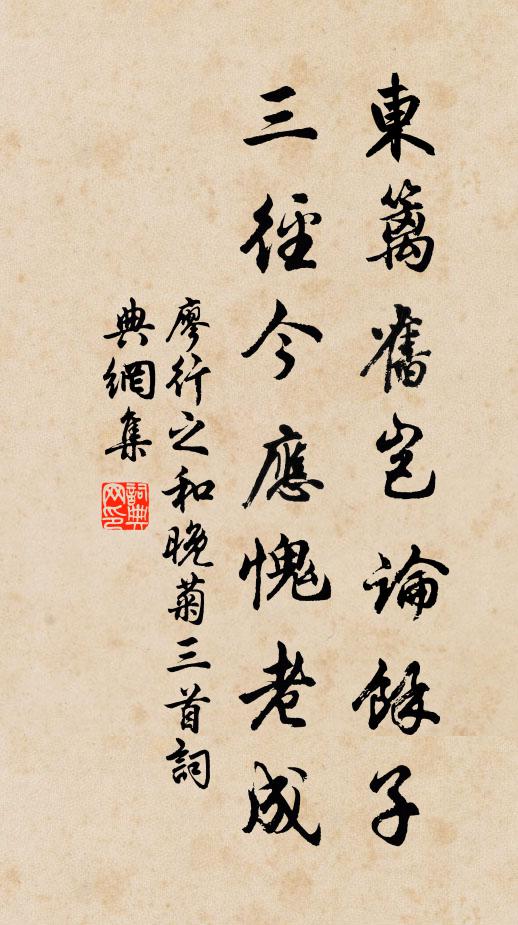 東籬舊豈論餘子
三徑今應愧老成
廖行之和晚菊三首詞
典網集
詞典網印